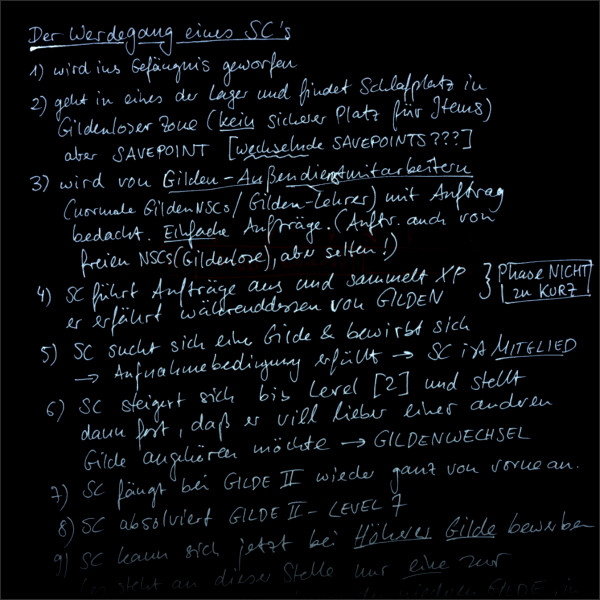 Der Werdegang eines SC's
1) wird ins Gefängnis geworfen
2) geht in eines der Lager und findet Schlafplatz in
Gildenloser Zone (kein sicherer Platz für Items)
aber SAVEPOINT [wechselnde SAVEPOINTS???]
3) wird von Gilden-Außendienstmitarbeitern
(normale GildenNSCs/Gilden-Lehrer) mit Auftrag
bedacht. Einfache Aufträge. (Auftr. auch von
freien NSCs (Gildenlose), aber selten!)
4) SC führt Aufträge aus und sammelt XP
er erfährt währenddessen von GILDEN
} Phase NICHT
zu KURZ
5) SC sucht sich eine Gilde & bewirbt sich
→ Aufnahmebedingung erfüllt → SC ist MITGLIED
6) SC steigert sich bis Level [2] und stellt
dann fest, daß er viel lieber einer anderen
Gilde angehören möchte → GILDENWECHSEL
7) SC fängt bei GILDE II wieder ganz von vorne an.
8) SC absolviert GILDE II - LEVEL 7
9) SC kann sich jetzt bei Höherer Gilde bewerben
steht an dieser Stelle nur eine zur